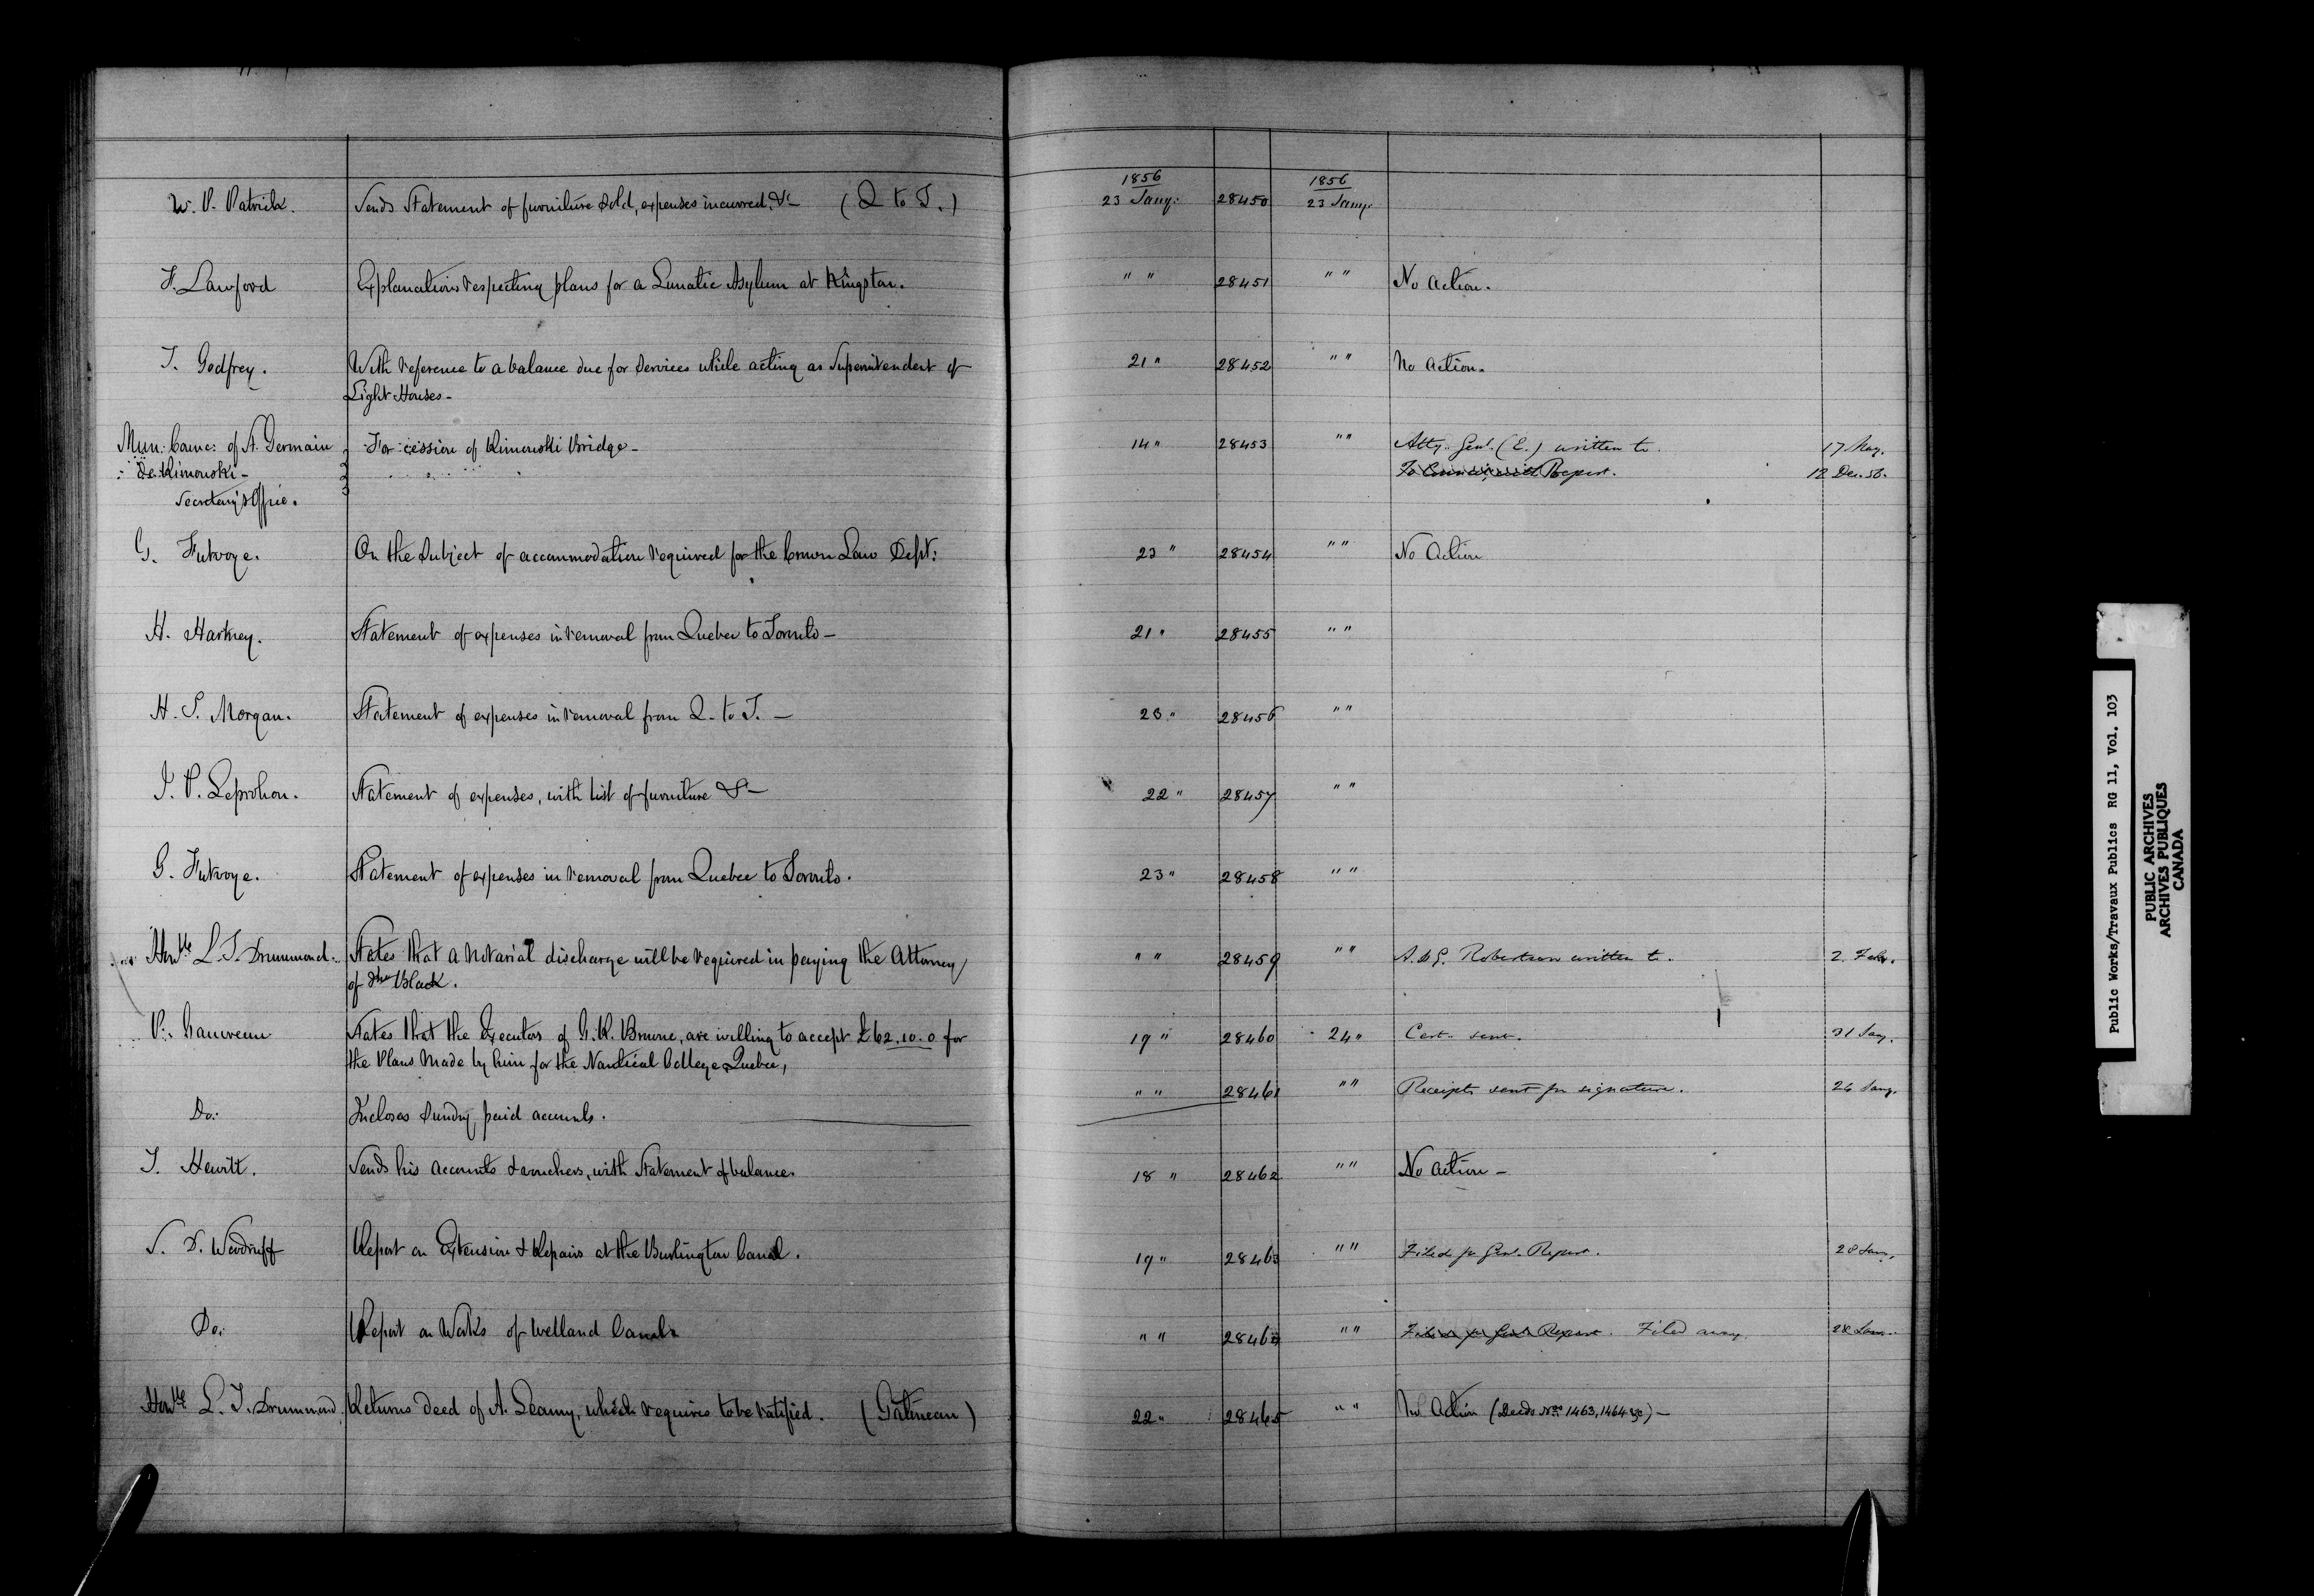 1856 1856
W. P. Patrick. Sends Statement of furniture sold, expenses incurred, &c (Q to T.) 23 Jany. 28450 23 Jany.
F. Lawford Explanations respecting plans for a Lunatic Asylum at Kingston. " " 28451 " " No Action.
T. Godfrey. With reference to a balance due for services while acting as Superintendent of 21 " 28452 " " No Action.
Light Houses -
Mun: Counc: of St. Germain For cession of Rimouski Bridge - 14 " 28453 " " Atty. Genl. (E.) written to. 17 May.
de Rimouski - To Council, with Report. 12 Dec. 56.
Secretary's Office.
G. Futvoye. On the subject of accommodation required for the Crown Law Dept: 23 " 28454 " " No Action
H. Hartney. Statement of expenses in removal from Quebec to Toronto - 21 " 28455 " "
H. S. Morgan. Statement of expenses in removal from Q. to T. - 23 " 28456 " "
J. P. Leprohon. Statement of expenses, with list of furniture &c - 22 " 28457 " "
G. Futvoye. Statement of expenses in removal from Quebec to Toronto. 23 " 28458 " "
Honble L. T. Drummond. States that a notarial discharge will be required in paying the Attorney " " 28459 " " A. & G. Robertson written to. 2 Feby.
of Black.
P. Gauvreau States that the Executors of G. R. Browne, are willing to accept £62.10.0 for 19 " 28460 24 " Cert. sent. 31 Jany.
the Plans made by him for the Nautical College Quebec,
" " 28461 " " Receipts sent for signature. 26 Jany.
Do: Incloses sundry paid accounts.
T. Hewitt. Sends his accounts & vouchers, with Statement of balance. 18 " 28462 " " No action -
S. D. Woodruff Report on Extension & Repairs at the Burlington Canal. 19 " 28463 " " Filed for Genl. Report. 28 Jany.
Do: Report on Works of Welland Canal " " 28464 " " Filed for Genl. Report. Filed away. 28 Jany.
Honble L. T. Drummond. Returns deed of A. Leamy, which requires to be ratified. (Gatineau) 22 " 28465 " " No Action (Deeds Nos 1463, 1464 &c) -
Public Works/Travaux Publics RG 11, Vol. 103
PUBLIC ARCHIVES
ARCHIVES PUBLIQUES
CANADA